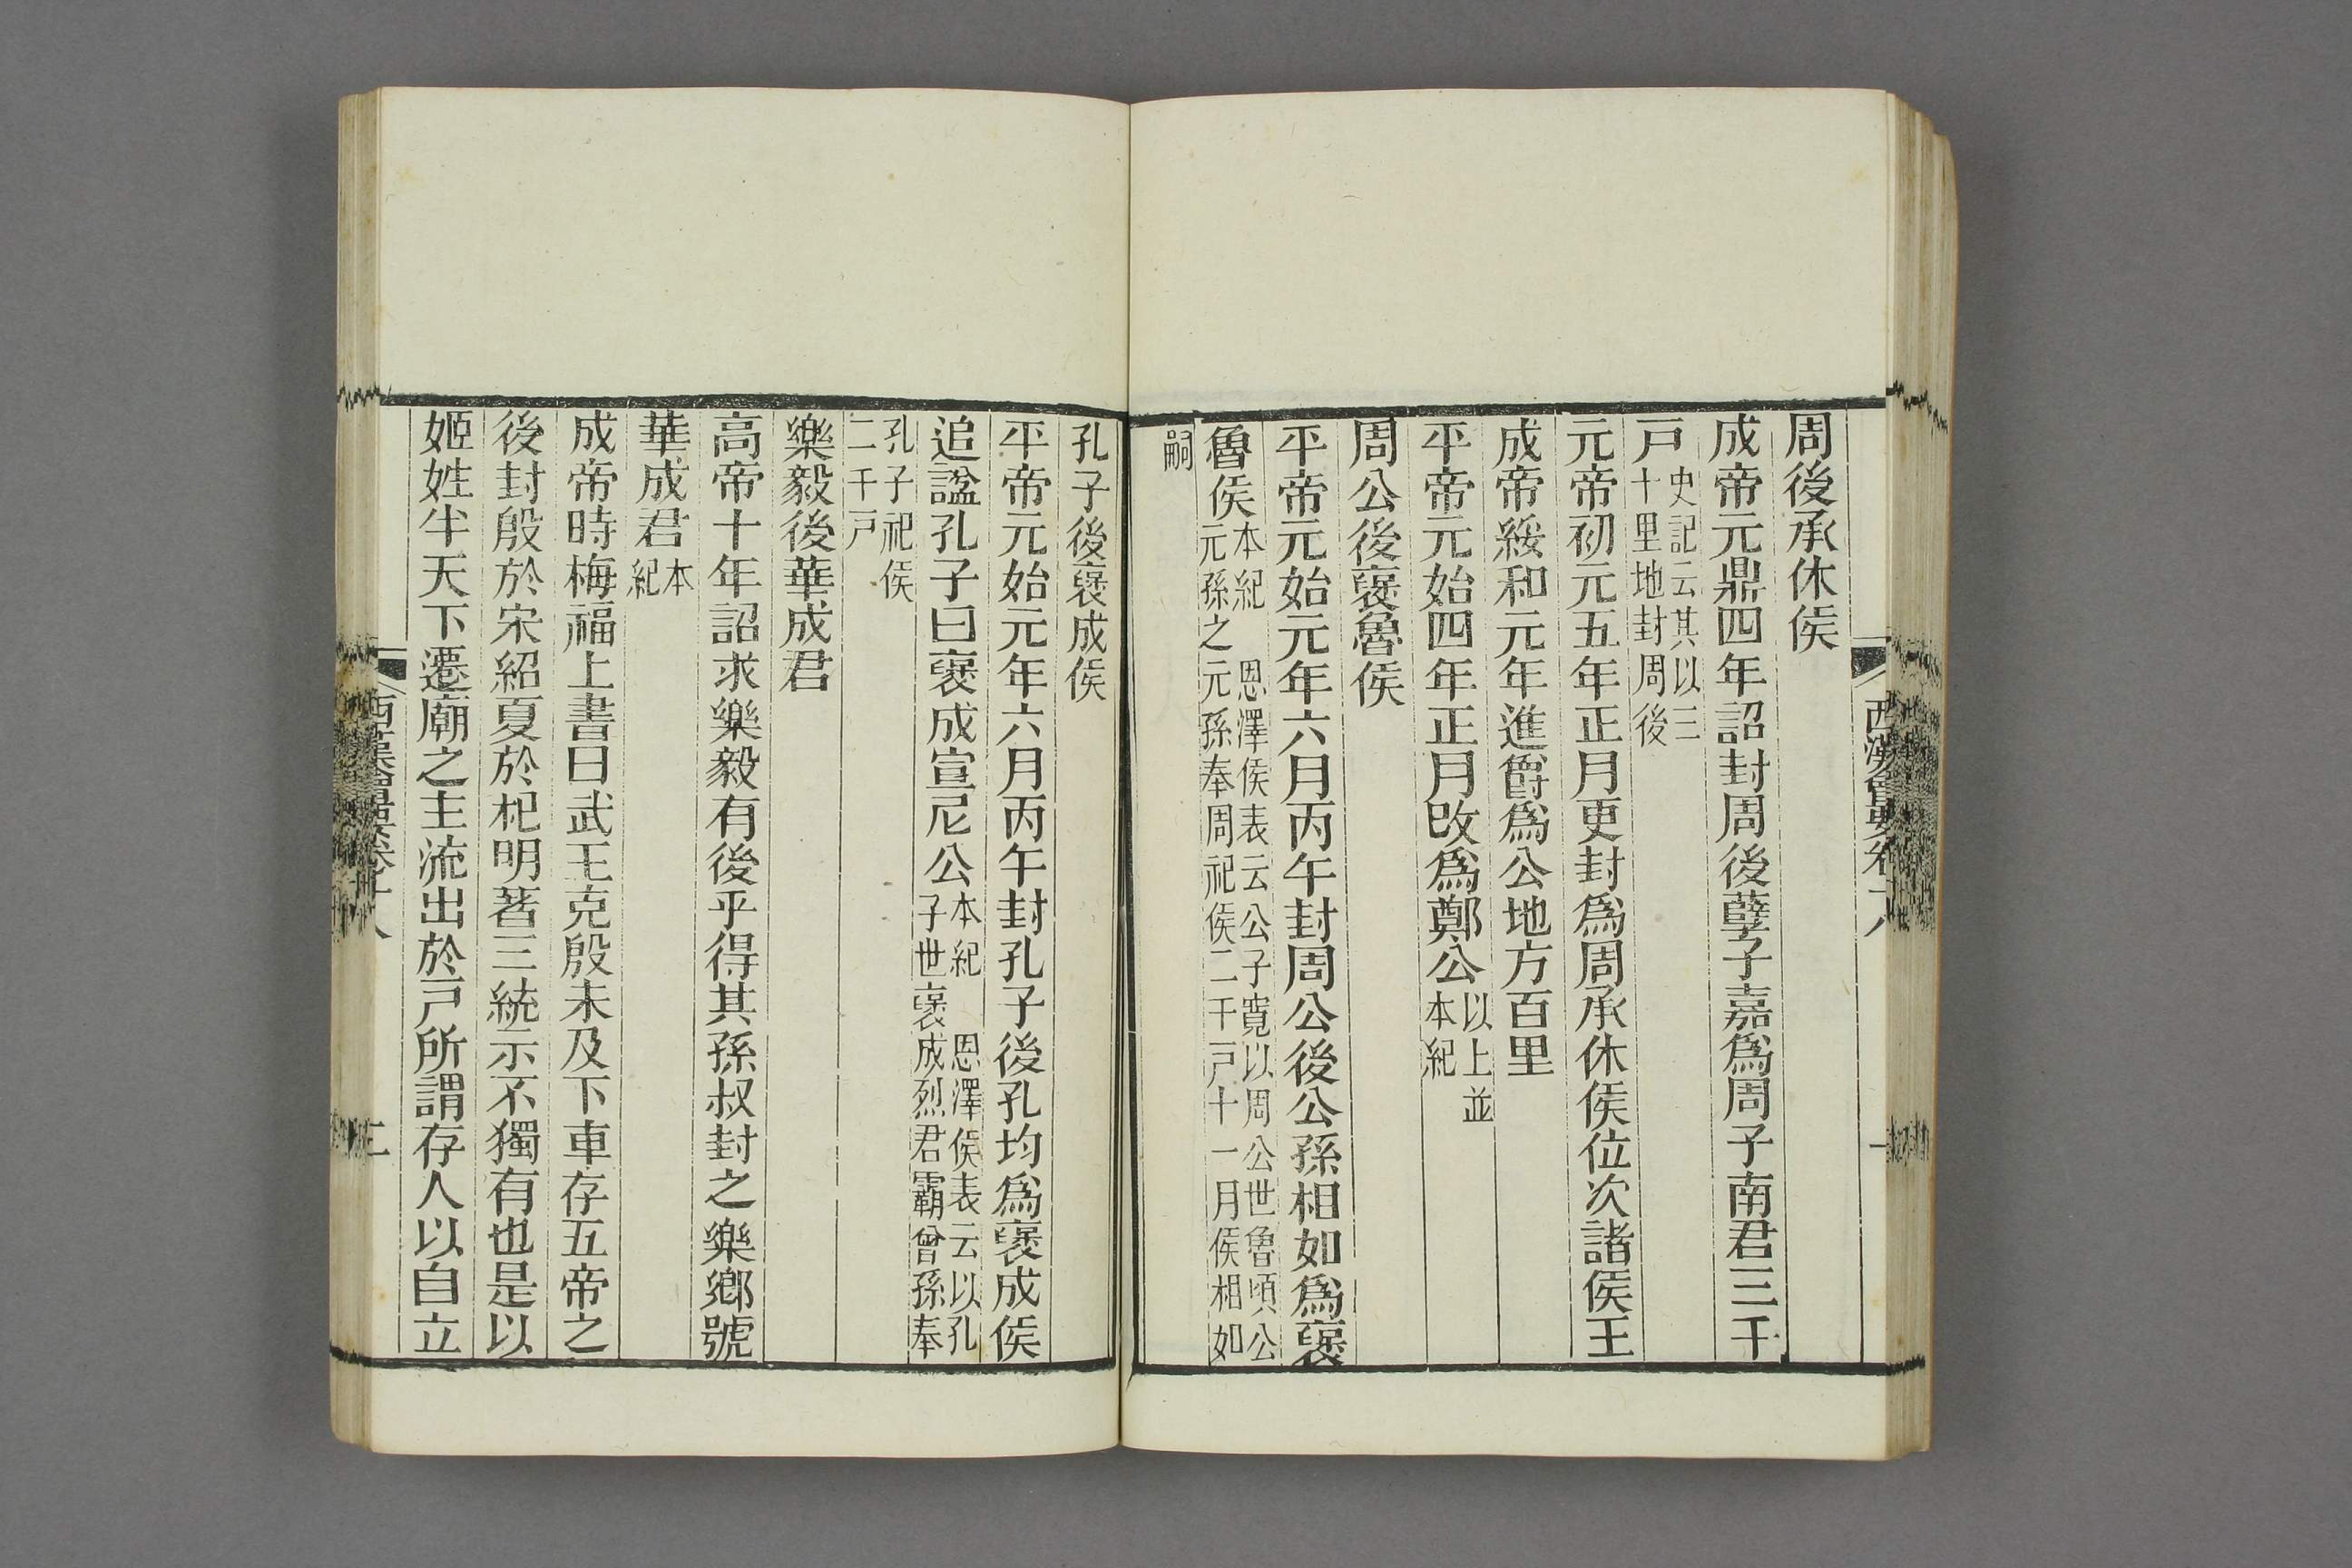 周後承休侯
成帝元鼎四年詔封周後孽子嘉爲周子南君三千
戸史記云其以三十里地封周後
元帝初元五年正月更封爲周承休侯位次諸侯王
成帝綏和元年進爵爲公地方百里
平帝元始四年正月改爲鄭公以上並本紀
周公後褒魯侯
平帝元始元年六月丙午封周公後公孫相如爲褒
魯侯本紀 恩澤侯表云公子寬以周公世魯頃公元孫之元孫奉周祀侯二千戸十一月侯相如
嗣
西漢會要卷十八
孔子後褒成侯
平帝元始元年六月丙午封孔子後孔均爲褒成侯
追諡孔子曰褒成宣尼公本紀 恩澤侯表云以孔子世褒成烈君霸曾孫奉
孔子祀侯二千戸
樂毅後華成君
高帝十年詔求樂毅有後乎得其孫叔封之樂鄉號
華成君本紀
成帝時梅福上書曰武王克殷未及下車存五帝之
後封殷於宋紹夏於杞明著三統示不獨有也是以
姬姓半天下遷廟之主流出於戸所謂存人以自立
西漢會要卷十八
二